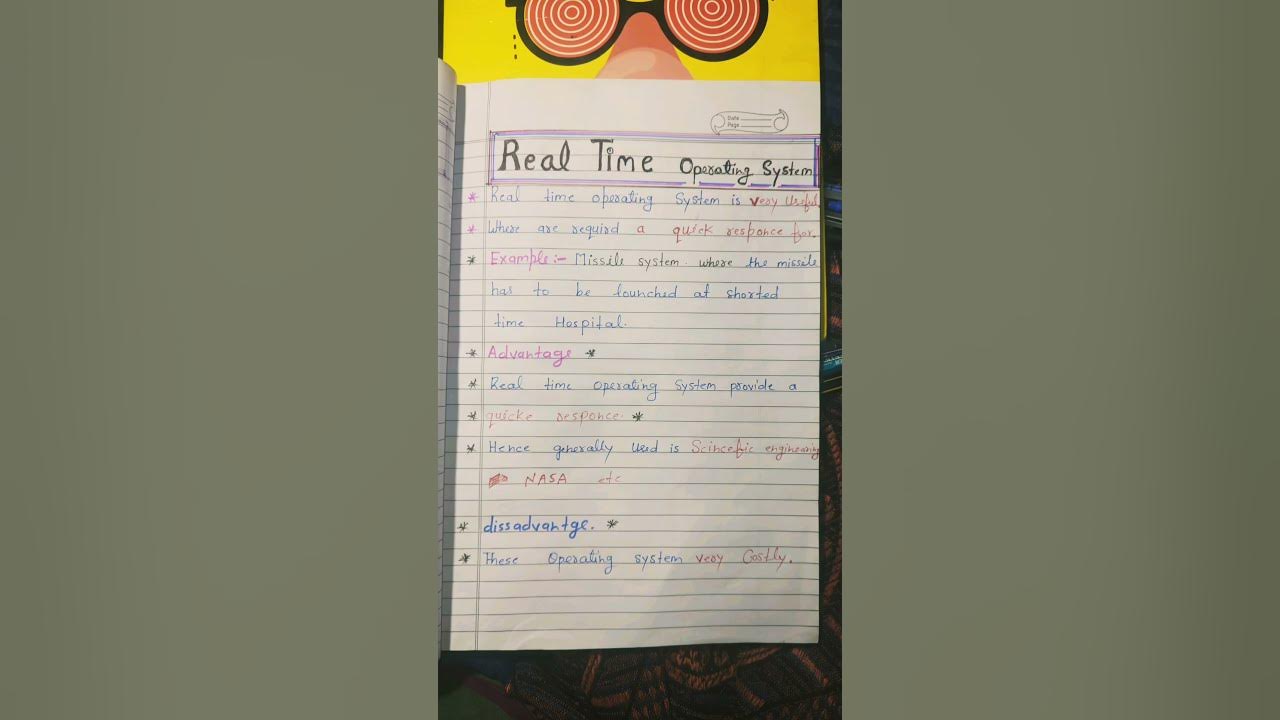 Date
Page
Real Time Operating System
* Real time operating System is very Useful
* Where are requird a quick responce for.
* Example:- Missile system. where the missile
has to be lounched at shorted
time Hospital.
* Advantage *
* Real time operating System provide a
* quicke responce. *
* Hence generally used is Scincefic engineering
NASA etc
* dissadvantge. *
* These Operating system very Costly.